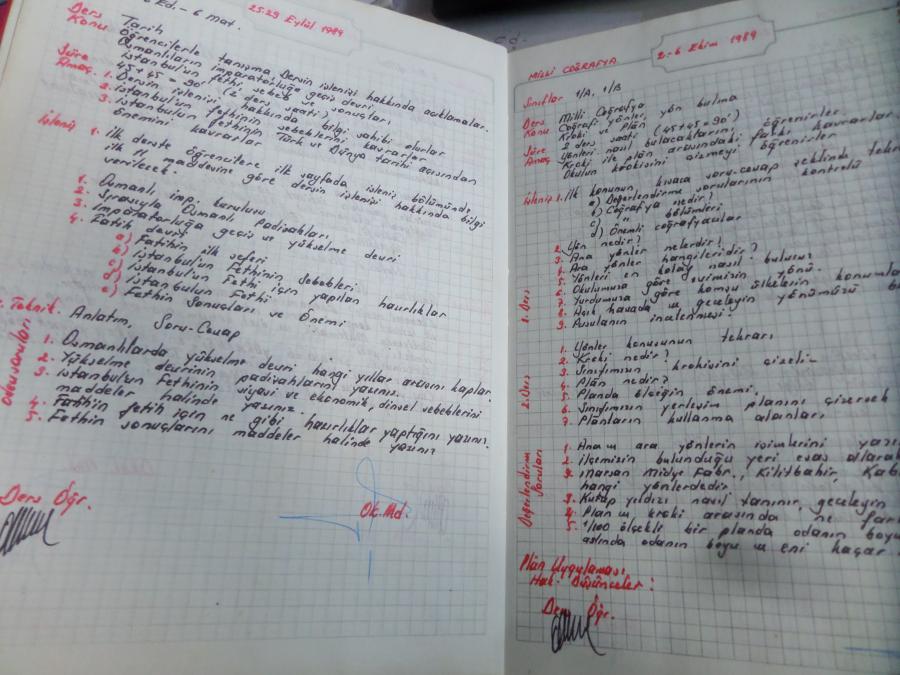 Ed. - 6 mat.
25-29 Eylül 1989
Ders Tarih
Konu Öğrencilerle tanışma, Dersin işlenişi hakkında açıklamalar.
Osmanlıların imparatorluğa geçiş devri
İstanbul'un fethi sebeb ve sonuçları,
Süre 45+45 = 90' (2 ders saati)
Amaç. 1. Dersin işlenişi hakkında bilgi sahibi olurlar
2. İstanbul'un fethinin sebeblerini kavrarlar
3. İstanbul'un fethinin Türk ve Dünya tarihi açısından
önemini kavrarlar
İşleniş 1. İlk derste öğrencilere ilk sayfada işleniş bölümünde
ilk maddesine göre dersin işlenişi hakkında bilgi
verilecek.
1. Osmanlı imp. kuruluşu
2. Sırasıyla Osmanlı Padişahları
3. İmparatorluğa geçiş ve yükselme devri
4. Fatih devri
a) Fatihin ilk seferi
b) İstanbul'un Fethinin Sebebleri
c) İstanbul'un Fethi için yapılan hazırlıklar
d) İstanbulun Fethi
e) Fethin Sonuçları ve Önemi
Teknik. Anlatım, Soru-Cevap
Soruları
1. Osmanlılarda yükselme devri hangi yıllar arasını kaplar.
2. Yükselme devrinin padişahlarını yazınız.
3. İstanbul'un Fethinin siyasi ve ekonomik, dinsel sebeblerini
maddeler halinde yazınız.
4. Fatihin fetih için ne gibi hazırlıklar yaptığını yazınız.
5. Fethin sonuçlarını maddeler halinde yazınız
Ders Öğr.
Ok. Md.
MİLLİ COĞRAFYA
2-6 Ekim 1989
Sınıflar 1/A, 1/B
Ders Milli Coğrafya
Konu Coğrafi yönler, yön bulma
Kroki ve Plân
Süre 2 ders saati (45+45=90')
Amaç Yönleri nasıl bulacaklarını öğrenirler.
Kroki ile plân arasındaki farkı kavrarlar
Okulun krokisini çizmeyi öğrenirler
İşleniş 1. İlk konunun kısaca soru-cevap şeklinde tekra
a) Değerlendirme sorularının kontrolü
b) Coğrafya nedir?
c) " bölümleri
d) Önemli coğrafyacılar
1. Ders
2. Yön nedir?
3. Ana yönler nelerdir?
4. Ara yönler hangileridir?
5. Yönleri en kolay nasıl bulursun
6. Okulumuza göre evimizin yönü.
7. Yurdumuza göre komşu ülkelerin konumla
8. Açık havada ve geceleyin yönümüzü b
9. Pusulanın incelenmesi.
2. Ders
1. Yönler konusunun tekrarı
2. Kroki nedir?
3. Sınıfımızın krokisini çizeli
4. Plân nedir?
5. Planda ölçeğin önemi
6. Sınıfımızın yerleşim planını çizerek
7. Plânların kullanma alanları
Değerlendirme Soruları
1. Ana ve ara yönlerin isimlerini yazı
2. İlçemizin bulunduğu yeri esas alarak
Marsan Midye Fabr., Kilitbahir, Kab
hangi yönlerdedir.
3. Kutup yıldızı nasıl tanınır, geceleyin
4. Plân ve kroki arasında ne fark
5. 1/100 ölçekli bir planda odanın boyu
aslında odanın boyu ve eni kaçar
Plân Uygulaması
Hak. Düşünceler:
Ders Öğr.